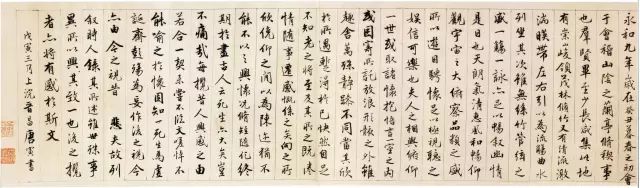 永和九年歲在癸丑暮春之初會
于會稽山陰之蘭亭脩稧事
也群賢畢至少長咸集此地
有崇峻領茂林脩竹又有清流激
湍暎帶左右引以為流觴曲水
列坐其次雖無絲竹管絃之
盛一觴一詠亦足以暢敘幽情
是日也天朗氣清惠風和暢仰
觀宇宙之大俯察品類之盛
所以遊目騁懷足以極視聽之
娛信可樂也夫人之相與俯仰
一世或取諸懷抱悟言一室之內
或因寄所託放浪形骸之外雖
趣舍萬殊靜躁不同當其欣
於所遇蹔得於己快然自足
不知老之將至及其所之既惓
情隨事遷感慨係之矣向之所
欣俛仰之閒以為陳迹猶不
能不以之興懷況脩短隨化終
期於盡古人云死生亦大矣豈
不痛哉每攬昔人興感之由
若合一契未嘗不臨文嗟悼不
能喻之於懷固知一死生為虛
誕齊彭殤為妄作後之視今
亦由今之視昔 悲夫故列
敘時人錄其所述雖世殊事
異所以興其致一也後之攬
者亦將有感於斯文
戊寅三月上沉晉昌唐寅書